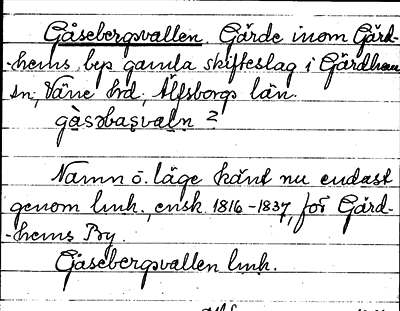 Gåsebergsvallen. Gärde inom Gärd-
-hems bys gamla skifteslag i Gärdhem
sn, Väne hd, Älfsborgs län.
gàsəbaṣvaḷn 2
Namn o. läge känt nu endast
genom lmh., ensk. 1816-1837, för Gärd-
-hems By.
Gåsebergsvallen lmh.